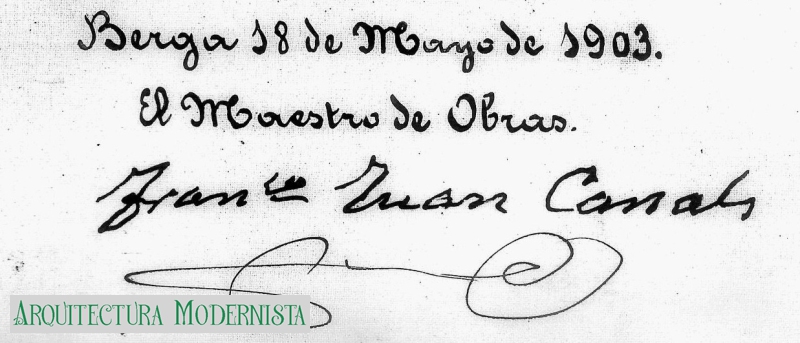 Berga 18 de Mayo de 1903.
El Maestro de Obras.
Franco Juan Canals
Arquitectura Modernista